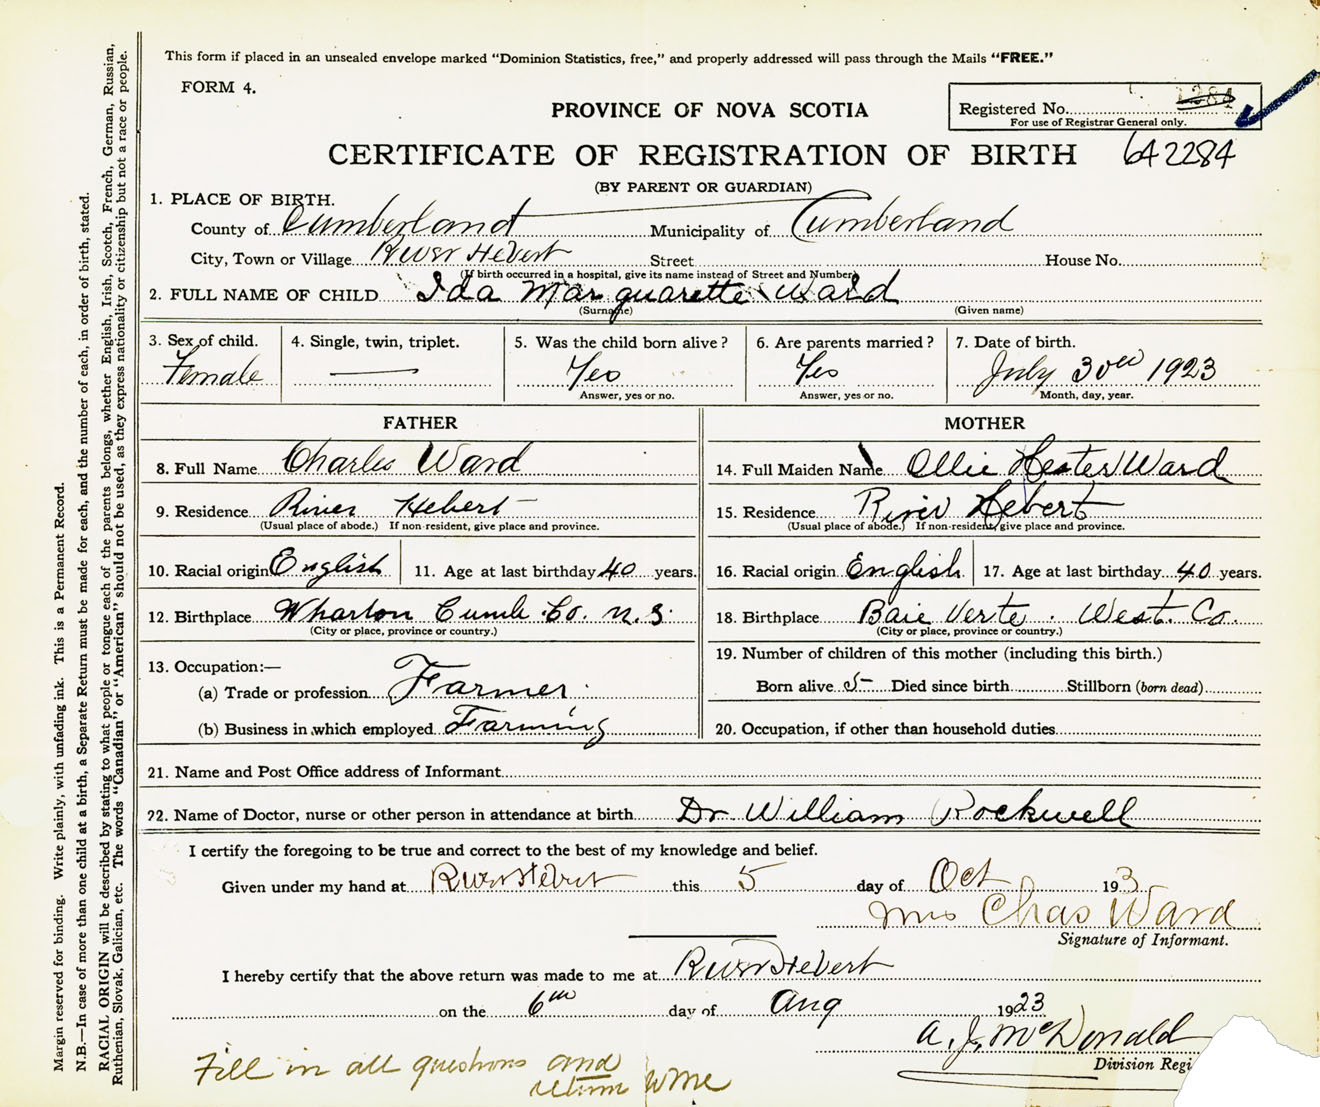 This form if placed in an unsealed envelope marked "Dominion Statistics, free," and properly addressed will pass through the Mails "FREE."
FORM 4.
PROVINCE OF NOVA SCOTIA
Registered No. 2284
For use of Registrar General only.
CERTIFICATE OF REGISTRATION OF BIRTH 642284
(BY PARENT OR GUARDIAN)
1. PLACE OF BIRTH.
County of Cumberland Municipality of Cumberland
City, Town or Village River Hebert Street House No.
(If birth occurred in a hospital, give its name instead of Street and Number)
2. FULL NAME OF CHILD Ida Marguarette Ward
(Surname) (Given name)
3. Sex of child. 4. Single, twin, triplet. 5. Was the child born alive? 6. Are parents married? 7. Date of birth.
Female — Yes Yes July 30th 1923
Answer, yes or no. Answer, yes or no. Month, day, year.
FATHER MOTHER
8. Full Name Charles Ward 14. Full Maiden Name Ollie Hester Ward
9. Residence River Hebert 15. Residence River Hebert
(Usual place of abode.) If non-resident, give place and province. (Usual place of abode.) If non-resident, give place and province.
10. Racial origin English 11. Age at last birthday 40 years. 16. Racial origin English 17. Age at last birthday 40 years.
12. Birthplace Wharton Cumb. Co. N.S. 18. Birthplace Baie Verte. West. Co.
(City or place, province or country.) (City or place, province or country.)
13. Occupation:— 19. Number of children of this mother (including this birth.)
(a) Trade or profession Farmer Born alive 5 Died since birth Stillborn (born dead)
(b) Business in which employed Farming 20. Occupation, if other than household duties
21. Name and Post Office address of Informant
22. Name of Doctor, nurse or other person in attendance at birth Dr. William Rockwell
I certify the foregoing to be true and correct to the best of my knowledge and belief.
Given under my hand at River Hebert this 5 day of Oct 193
Mrs Chas Ward
Signature of Informant.
I hereby certify that the above return was made to me at River Hebert
on the 6th day of Aug 1923
A. J. McDonald
Division Regi
Fill in all questions and
return to me
Margin reserved for binding. Write plainly, with unfading ink. This is a Permanent Record.
N.B.—In case of more than one child at a birth, a Separate Return must be made for each, and the number of each, in order of birth, stated.
RACIAL ORIGIN will be described by stating to what people or tongue each of the parents belongs, whether English, Irish, Scotch, French, German, Russian,
Ruthenian, Slovak, Galician, etc. The words "Canadian" or "American" should not be used, as they express nationality or citizenship but not a race or people.